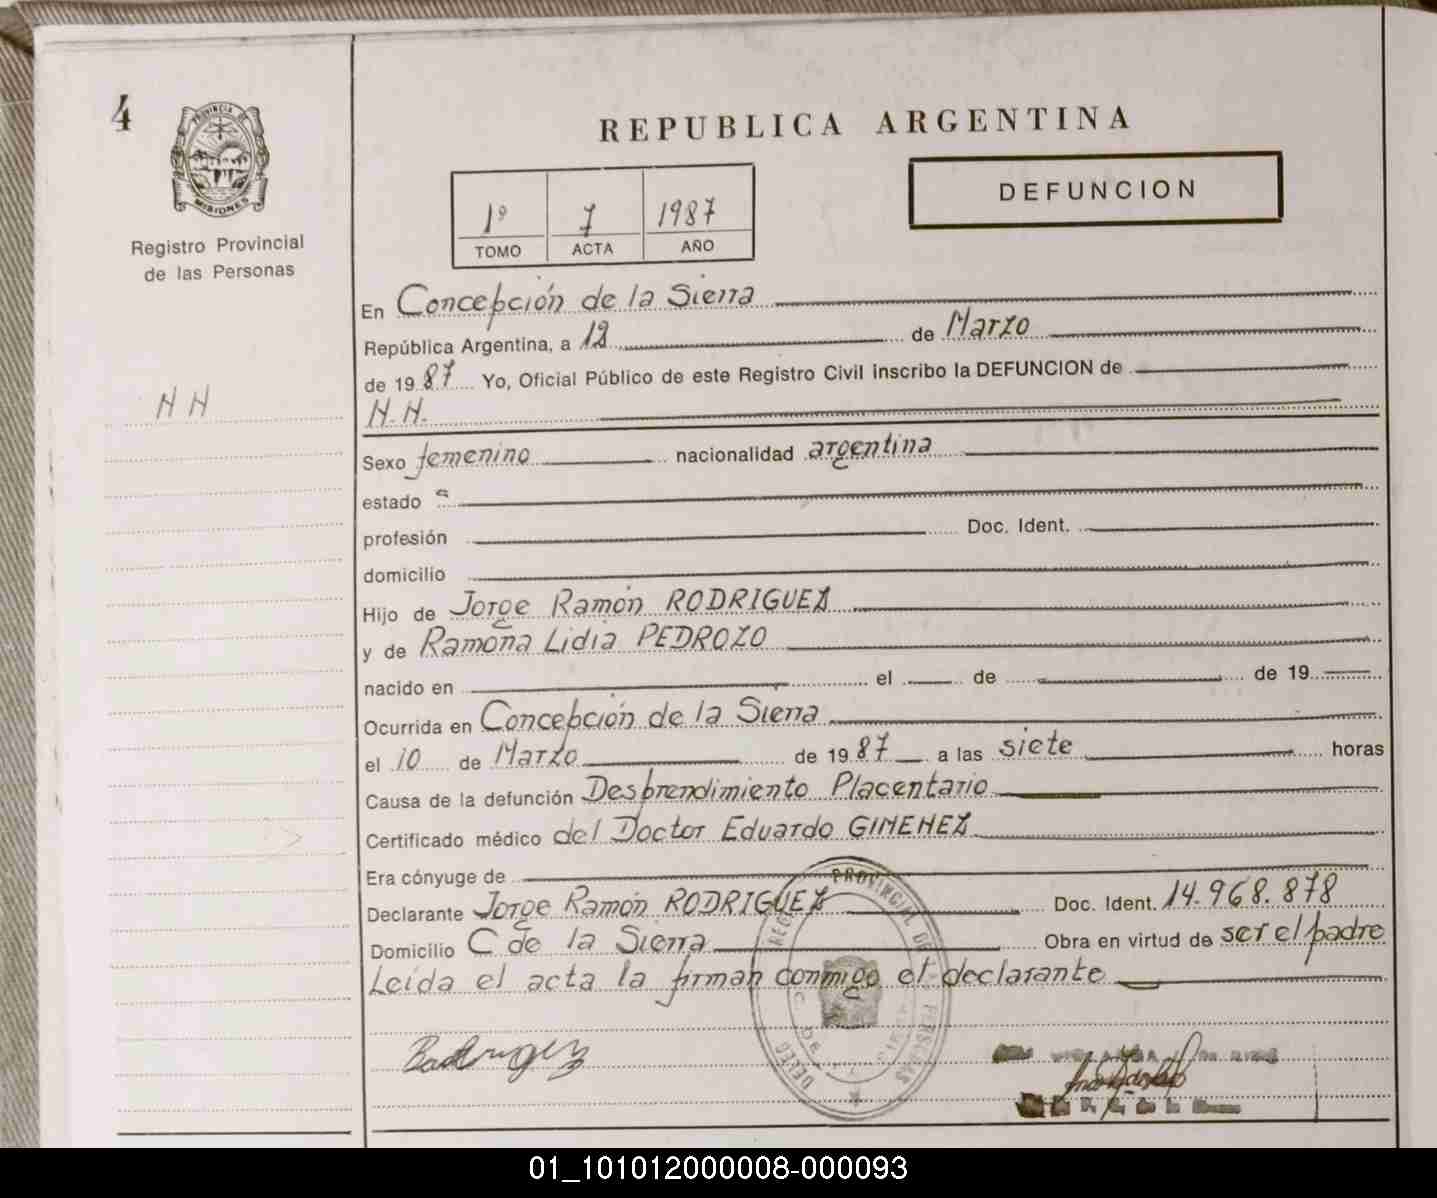 4
PROVINCIA DE
MISIONES
Registro Provincial
de las Personas
REPUBLICA ARGENTINA
1º 7 1987
TOMO ACTA AÑO
DEFUNCION
En Concepción de la Sierra
República Argentina, a 12 de Marzo
de 1987 Yo, Oficial Público de este Registro Civil inscribo la DEFUNCION de
N N
N.N.
Sexo femenino nacionalidad argentina
estado
profesión Doc. Ident.
domicilio
Hijo de Jorge Ramón RODRIGUEZ
y de Ramona Lidia PEDROZO
nacido en el de de 19
Ocurrida en Concepción de la Sierra
el 10 de Marzo de 1987 a las siete horas
Causa de la defunción Desprendimiento Placentario
Certificado médico del Doctor Eduardo GIMENEZ
Era cónyuge de
Declarante Jorge Ramón RODRIGUEZ Doc. Ident. 14.968.878
Domicilio C de la Sierra Obra en virtud de ser el padre
Leída el acta la firman conmigo el declarante
PROVINCIAL DE
01_101012000008-000093